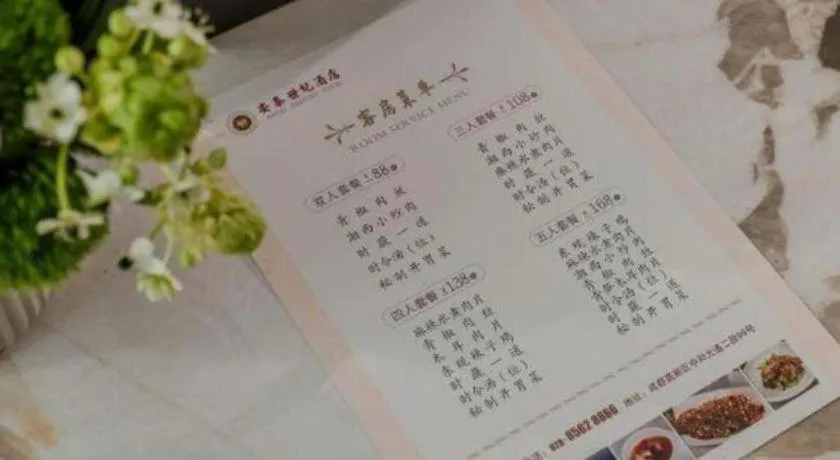 安泰世纪酒店
客房菜单
ROOM SERVICE MENU
双人套餐 ¥88
青椒肉丝
湘西小炒肉
时蔬一道
时令汤(位)
秘制开胃菜
三人套餐 ¥108
青椒肉丝
湘西小炒肉
麻辣水煮肉片
时蔬一道
时令汤(位)
秘制开胃菜
四人套餐 ¥138
麻辣水煮肉片
青椒肉丝
木耳肉片
乐观辣子鸡
时蔬一道
时令汤(位)
秘制开胃菜
五人套餐 ¥168
辣子鸡
麻辣水煮肉片
湘西小炒肉
青椒肉丝
木耳肉片
时令汤(位)
时蔬一道
秘制开胃菜
028-8562 8666 地址:成都高新区中和大道二段99号